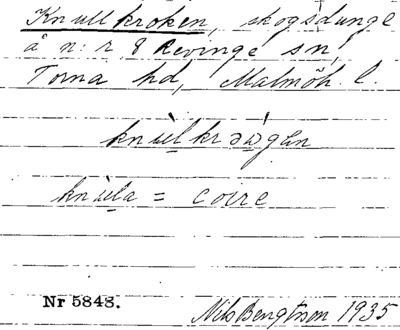 Knullkroken, skogsdunge
å n:r 8 Revinge sn,
Torna hd, Malmöh. l.
knùlkrəẁgən
knùla = coire
Nr 5848.
Nils Bengtsson 1935